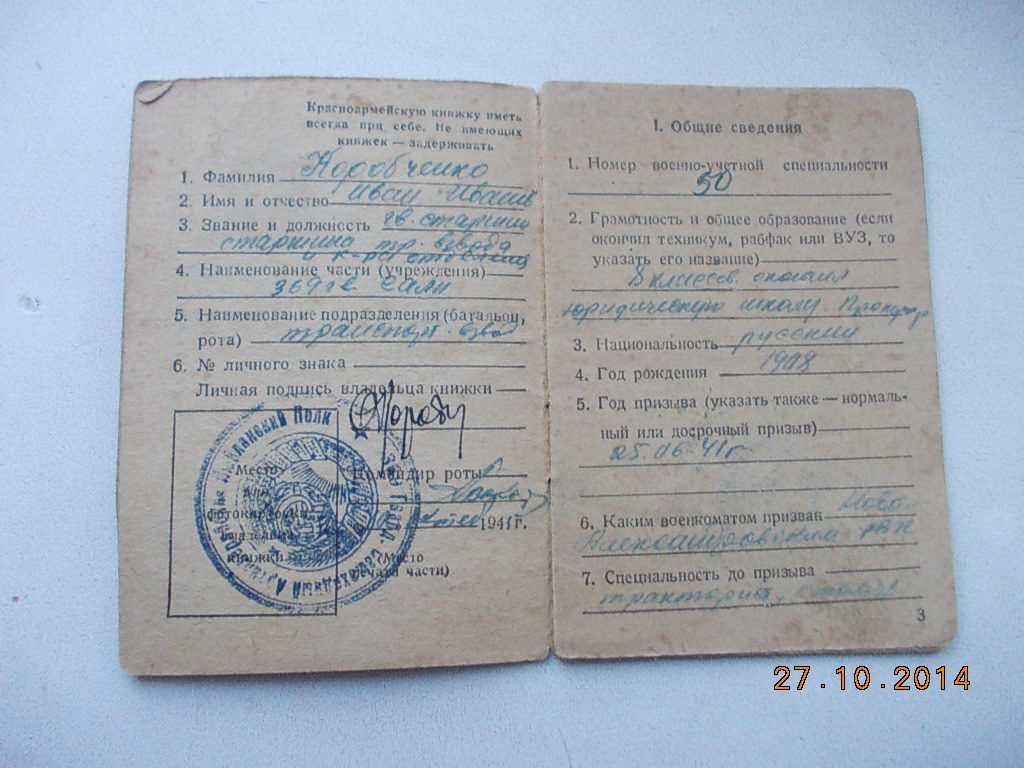 Красноармейскую книжку иметь
всегда при себе. Не имеющих
книжек — задерживать
1. Фамилия Коробченко
2. Имя и отчество Иван Иванов
3. Звание и должность гв. старшина
старшина тр. взвода
4. Наименование части (учреждения)
369 гв. сап
5. Наименование подразделения (батальон,
рота) транспорт. взвод
6. № личного знака
Личная подпись владельца книжки
Место
для
фотокарточки
владельца
книжки
Командир роты
194 г.
(Место
печати части)
I. Общие сведения
1. Номер военно-учетной специальности
50
2. Грамотность и общее образование (если
окончил техникум, рабфак или ВУЗ, то
указать его название)
8 классов
юридическую школу
3. Национальность русский
4. Год рождения 1908
5. Год призыва (указать также — нормаль-
ный или досрочный призыв)
25.06.41 г.
6. Каким военкоматом призван Ново
Александровским
7. Специальность до призыва
тракторист
3
27.10.2014